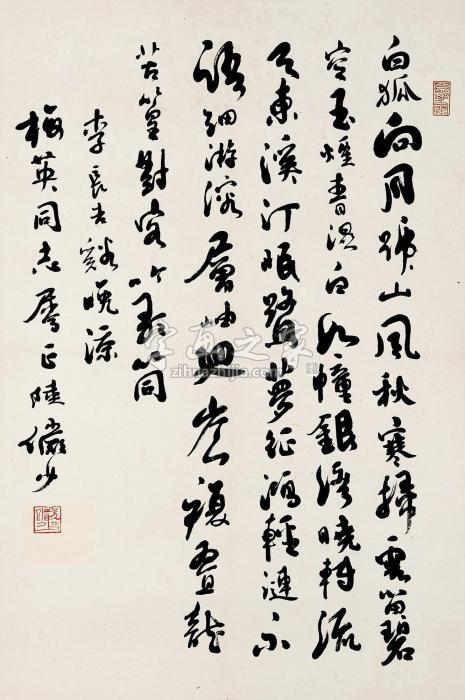 白狐向月號山風秋寒掃雲留碧
空玉煙青湿白如幢銀灣曉轉流
天東溪汀眠鷺夢征鴻輕漣不
語細游溶層岫迴岑複疊龍
苦篁對客吟歌筒
李長吉谿晚涼
梅英同志屬正陸儼少
字画之家
zihuazhijia.com